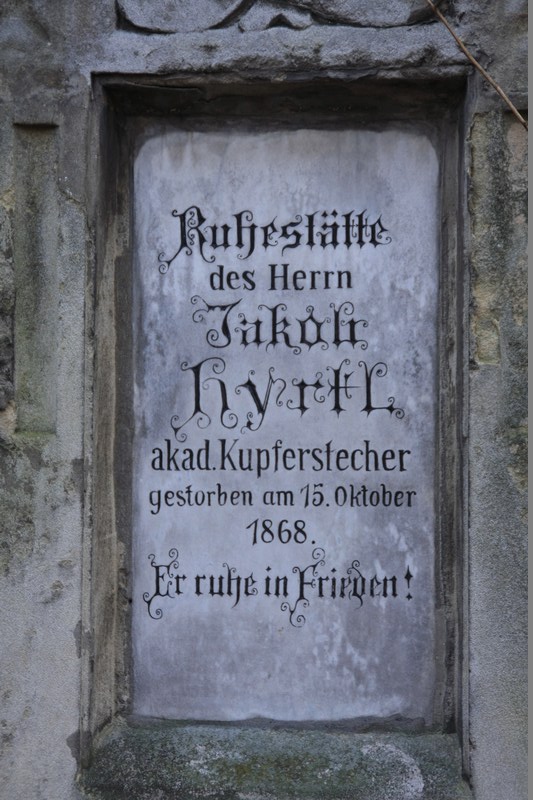 Ruhestätte
des Herrn
Jakob
Hyrtl
akad. Kupferstecher
gestorben am 15. Oktober
1868.
Er ruhe in Frieden!